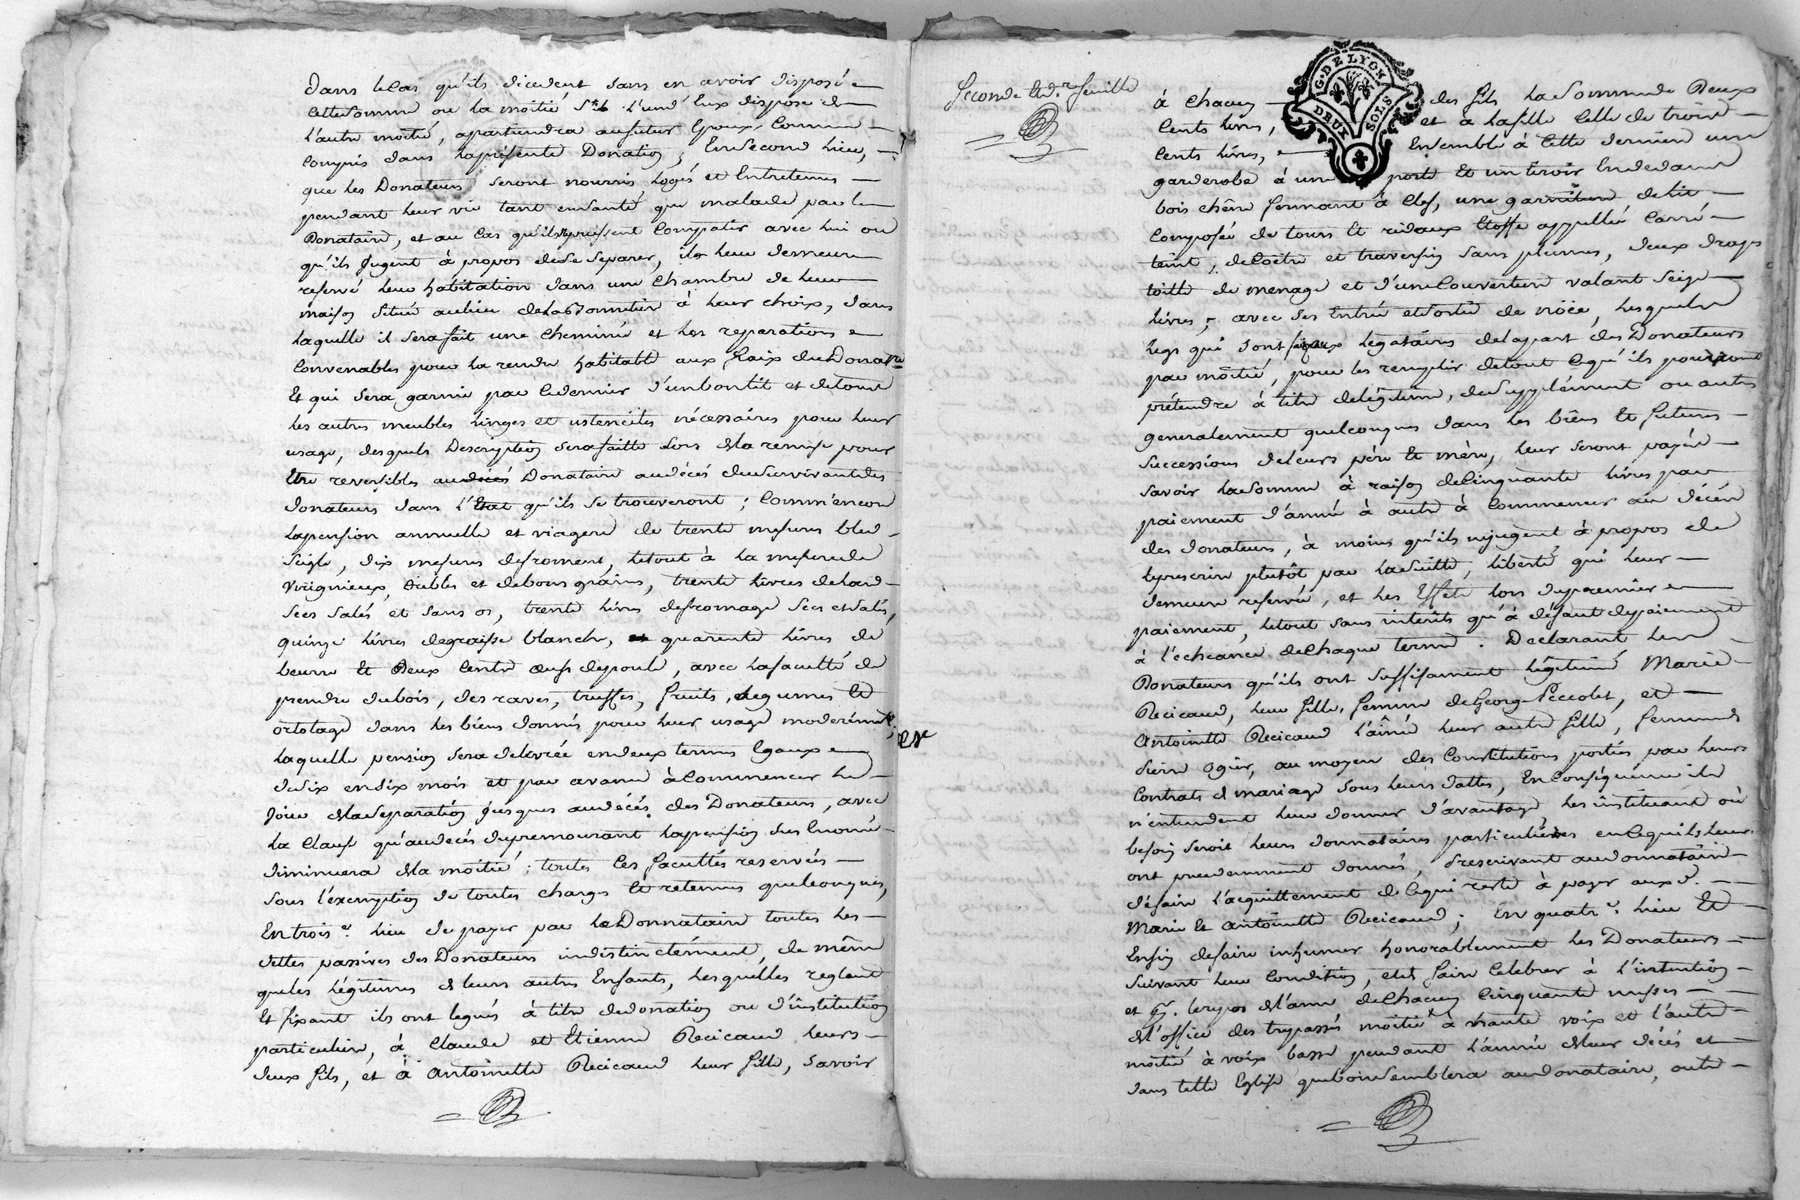 Dans le Cas qu'ils décedent sans en avoir disposé
cette somme ou la moitié si l'un d'Eux dispose de
l'autre moitié, apartiendra au futur Epoux, Comme
Compris dans la présente Donation; En Second lieu,
que les Donateurs seront nourris, logés et Entretenus
pendant leur vie tant en santé que malade par le
Donataire, et au Cas qu'ils ne pussent Compatir avec lui ou
qu'ils Jugent à propos de se separer, il leur demeure
reservé leur habitation dans une Chambre de leur
maison située au lieu de à leur choix, dans
laquelle il sera fait une Cheminée et les reparations
Convenables pour la rendre habitable aux fraix du Donatre
Et qui sera garnie par ce dernier d'un bon lit et de tous
les autres meubles linges et ustenciles nécessaires pour leur
usage, desquels Description sera faitte lors de la remise pour
Etre reversibles au Donataire au décés du survivant des
donateurs dans l'Etat qu'ils se trouveront; Comm'encore
la pension annuelle et viagere de trente mesures bled
seigle, dix mesures de froment, le tout à la mesure de
Virignieux, Cribles et de bons grains, trente livres de lard
secs salés et sans os, trente livres de fromage secs et salés,
quinze livres de graisse blanche, quarente livres de
beurre Et Deux Cents œufs de poule, avec la faculté de
prendre du bois, des raves, truffes, fruits, Legumes Et
ortolage dans les biens donnés pour leur usage moderémt,
laquelle pension sera délivrée en deux termes Egaux
de six en six mois et par avance à Commencer le
Jour de la Separation Jusques au décés des Donateurs, avec
la Clause qu'au decés du premourant la pension sus Enoncée
diminuera de la moitié; toutes les facultés reservés
sous l'exemption de toutes charges Et retenues quelconques,
En trois.e lieu de payer par le Donnataire toutes les
dettes passives des Donateurs indistinctément, de même
que les légitimes de leurs autres Enfants, lesquelles reglant
Et fixant ils ont legués à titre de donation ou d'institution
particuliere, à Claude et Etienne Recicaud leurs
deux fils, et à Antoinette Recicaud leur fille, savoir
Seconde et dre feuille
G. DE LYON
DEUX SOLS
à Chacun des fils la Somme de Deux
Cents livres, et à la fille Celle de trois
Cents livres, Ensemble à Cette derniere une
garderobe à une porte Et un tiroir En dedans
bois chêne fermant à Clef, une garniture de lit
Composée de tours Et rideaux Etoffe appellée Carré
teint, de Coêtre et traversin sans plumes, deux draps
toille de menage et d'une Couverture valant seize
livres, avec ses Entrée et Sortie de nôce, lesquels
legs qui sont faits aux légataires de la part des Donateurs
par moitié, pour les remplir de tout ce qu'ils pourroient
prétendre à titre de légitime, de supplément ou autres
generalement quelconques dans les biens Et futures
successions de leurs père Et mère, leur seront payés
savoir la Somme à raison de Cinquante livres par
paiement d'année à autre à Commencer au décés
des donateurs, à moins qu'ils ne jugent à propos de
le prescrire plutôt par la suitte, liberté qui leur
demeure reservée, et les Effets lors du premier
paiement, le tout sans interêts qu'à défaut de paiement
à l'echeance de Chaque terme. Declarant les
Donateurs qu'ils ont suffisament légitimé Marie
Recicaud, leur fille, femme de George Peccolet, et
Antoinette Recicaud l'aînée leur autre fille, femme de
Pierre Ogier, au moyen des Constitutions portées par leurs
Contrats de mariage sous leurs dattes, En Conséquence ils
n'entendent leur donner d'avantage, les instituant où
besoin seroit leurs donnataires particulieres en Ce qu'ils leurs
ont precedemment donné, prescrivant au donnataire
de faire l'acquittement de Ce qui reste à payer aux d.
Marie Et Antoinette Recicaud; En quatr.e lieu Et
Enfin de faire inhumer honorablement les Donateurs
suivant leur Condition, et de faire Celebrer à l'intention
et p.r le repos de l'ame de Chacun Cinquante messes
de l'office des trepassés moitié à haute voix et l'autre
moitié à voix basse pendant l'année de leur décés et
dans telle Eglise que bon semblera au donataire, outre